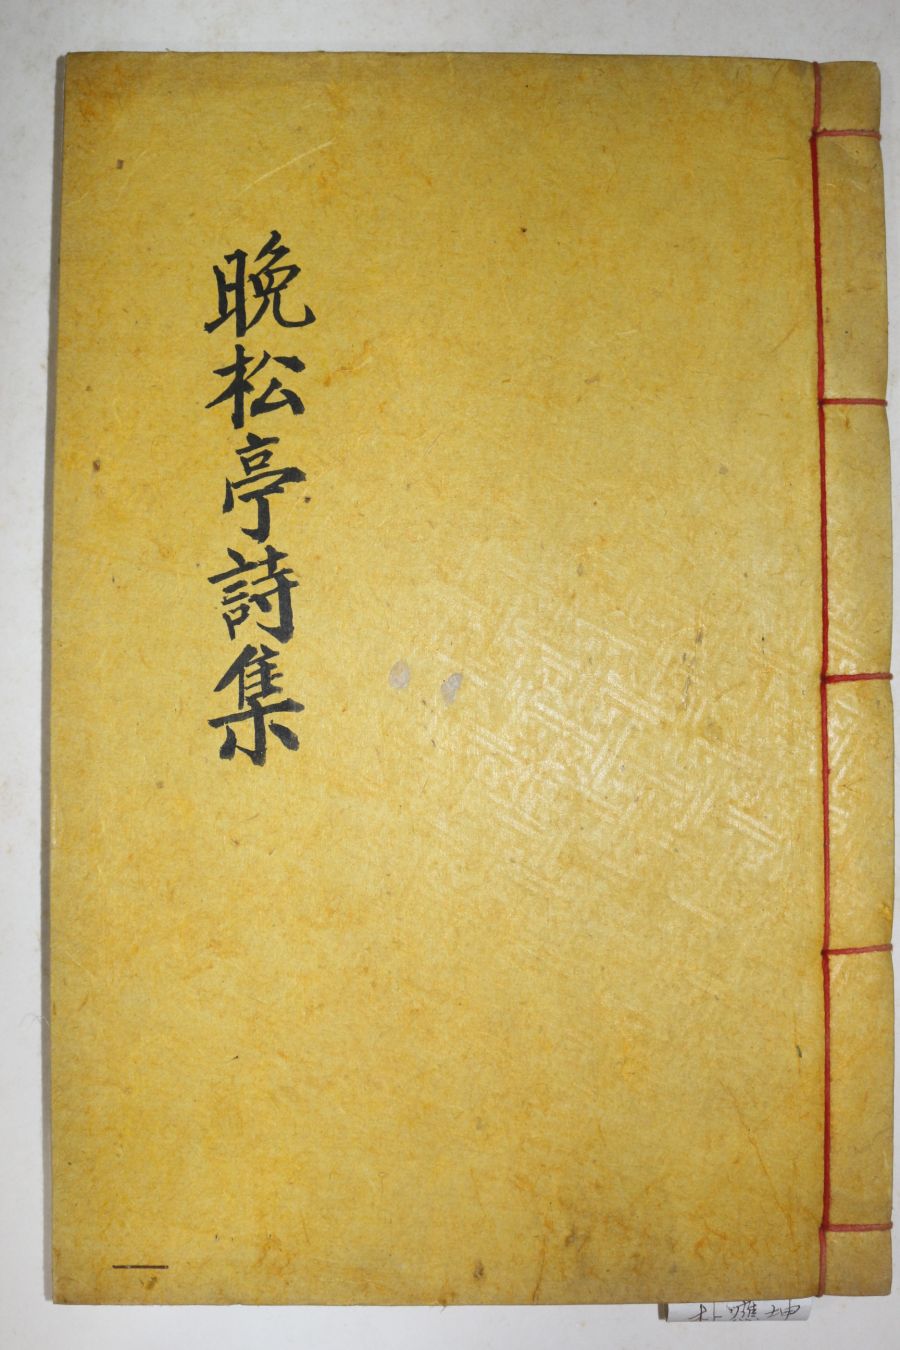 晩松亭詩集